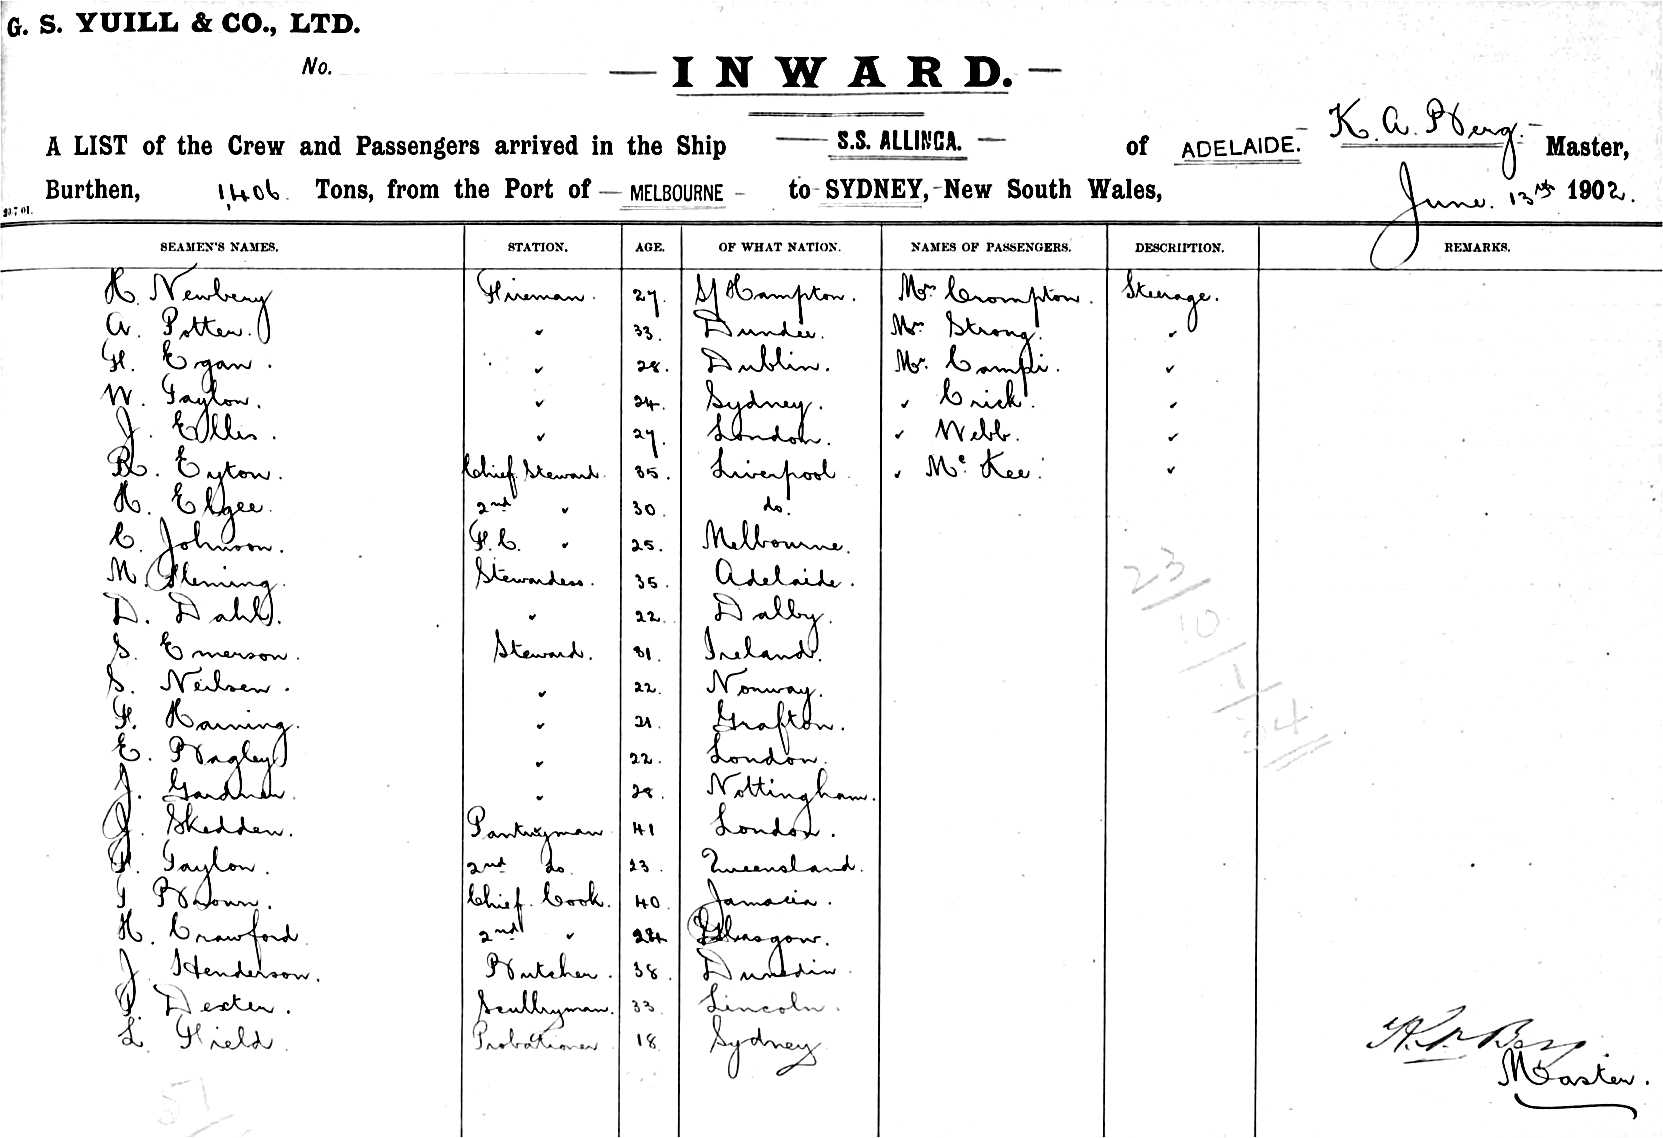 G. S. YUILL & CO., LTD.
No.
— INWARD. —
A LIST of the Crew and Passengers arrived in the Ship — S.S. ALLINGA. — of ADELAIDE. K. A. Berg. Master,
Burthen, 1,406 Tons, from the Port of — MELBOURNE — to SYDNEY, New South Wales, June. 13th 1902.
SEAMEN'S NAMES. STATION. AGE. OF WHAT NATION. NAMES OF PASSENGERS. DESCRIPTION. REMARKS.
H. Newbery Fireman. 27. S/Hampton. Mrs Crompton. Steerage.
A. Potter. " 33. Dundee. Mr Strong. "
F. Egan. " 28. Dublin. Mr. Campi. "
W. Taylor. " 24. Sydney. " Crick. "
J. Ellis. " 27. London. " Webb. "
R. Eyton. Chief Steward. 35. Liverpool " McKee. "
H. Elgee. 2nd " 30. do.
C. Johnson. F.C. " 25. Melbourne.
M. Fleming. Stewardess. 35. Adelaide.
D. Dahl. " 22. Dalby.
S. Emerson. Steward. 31. Ireland.
S. Neilsen. " 22. Norway.
F. Haining. " 21. Grafton.
E. Bagley " 22. London.
J. Gardner. " 28. Nottingham.
J. Skedden. Pantryman 41 London.
F. Taylor. 2nd do. 23. Queensland.
T. Brown. Chief Cook. 40. Jamacia.
H. Crawford 2nd " 24. Glasgow.
J. Henderson. Butcher. 38. Dunedin.
P. Dexter. Scullryman. 33. Lincoln.
L. Field Probationer 18. Sydney
23/10/1/34
Master.